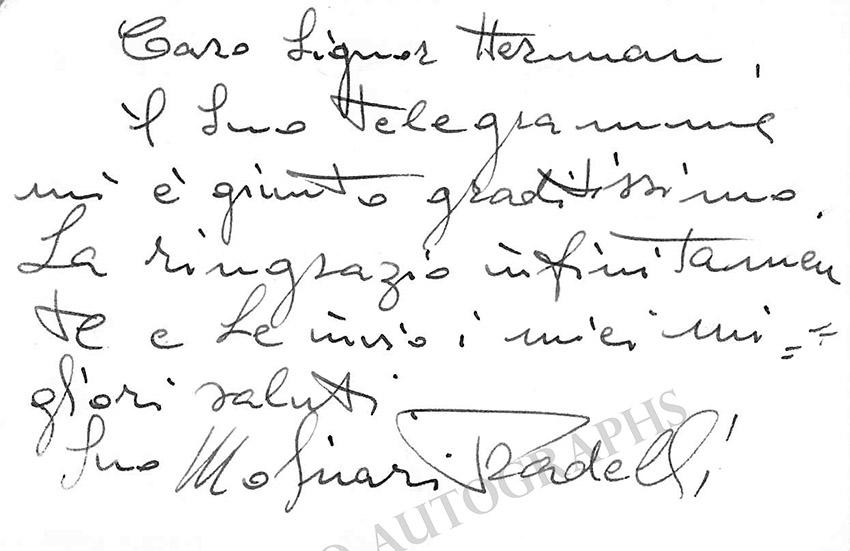 Caro Signor Herman,
il Suo telegramma
mi è giunto graditissimo.
La ringrazio infinitamen
te e Le invio i miei mi=
gliori saluti
Suo Molinari Pradelli
O AUTOGRAPHS